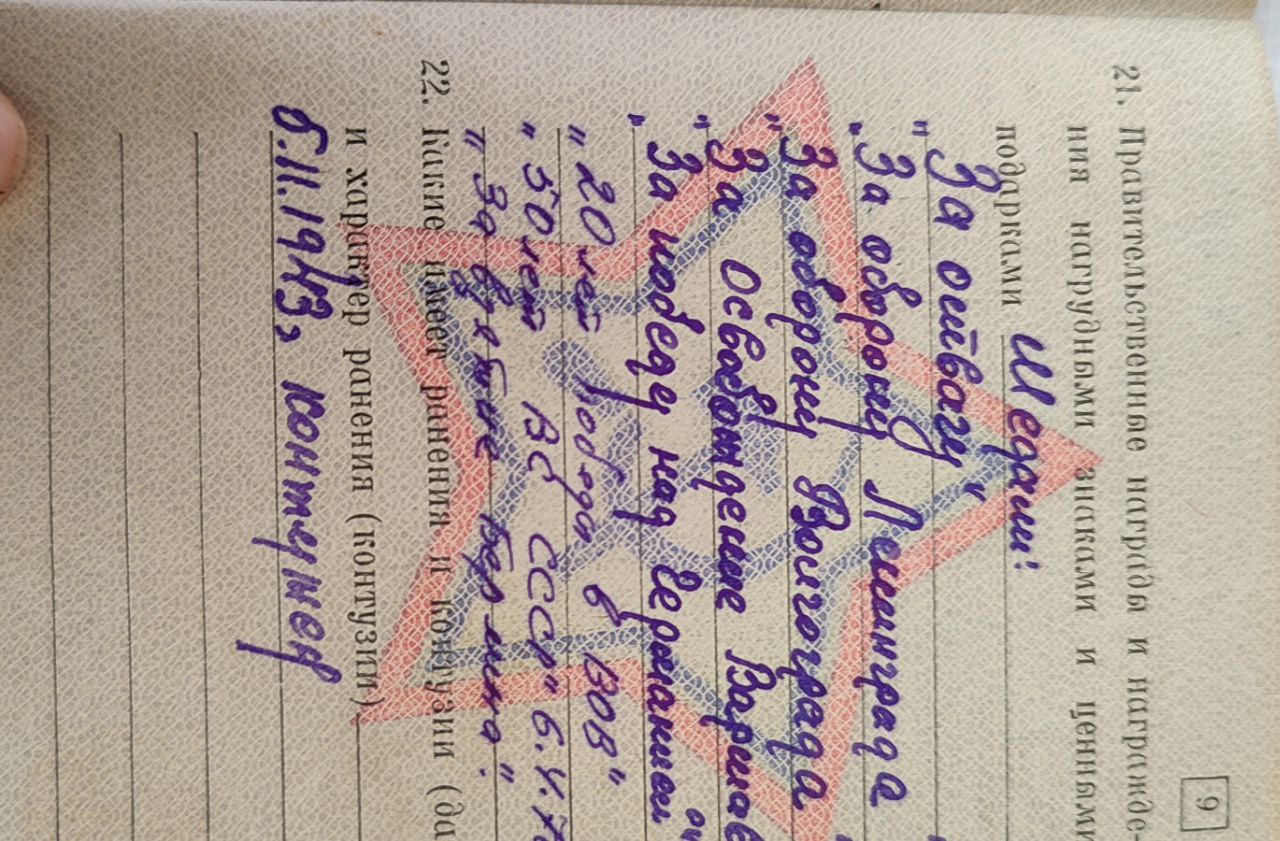 9
21. Правительственные награды и награжде-
ния нагрудными знаками и ценными
подарками Медали:
" За отвагу"
" За оборону Ленинграда "
" За оборону Волгограда "
" За Освобождение Варшав
" За победу над Германией
" 20 лет Победы в ВОВ"
" 50 лет ВС СССР" 6.V.7
" За взятие Берлина".
22. Какие имеет ранения и контузии (да
и характер ранения (контузии)
6.II.1943, контужен